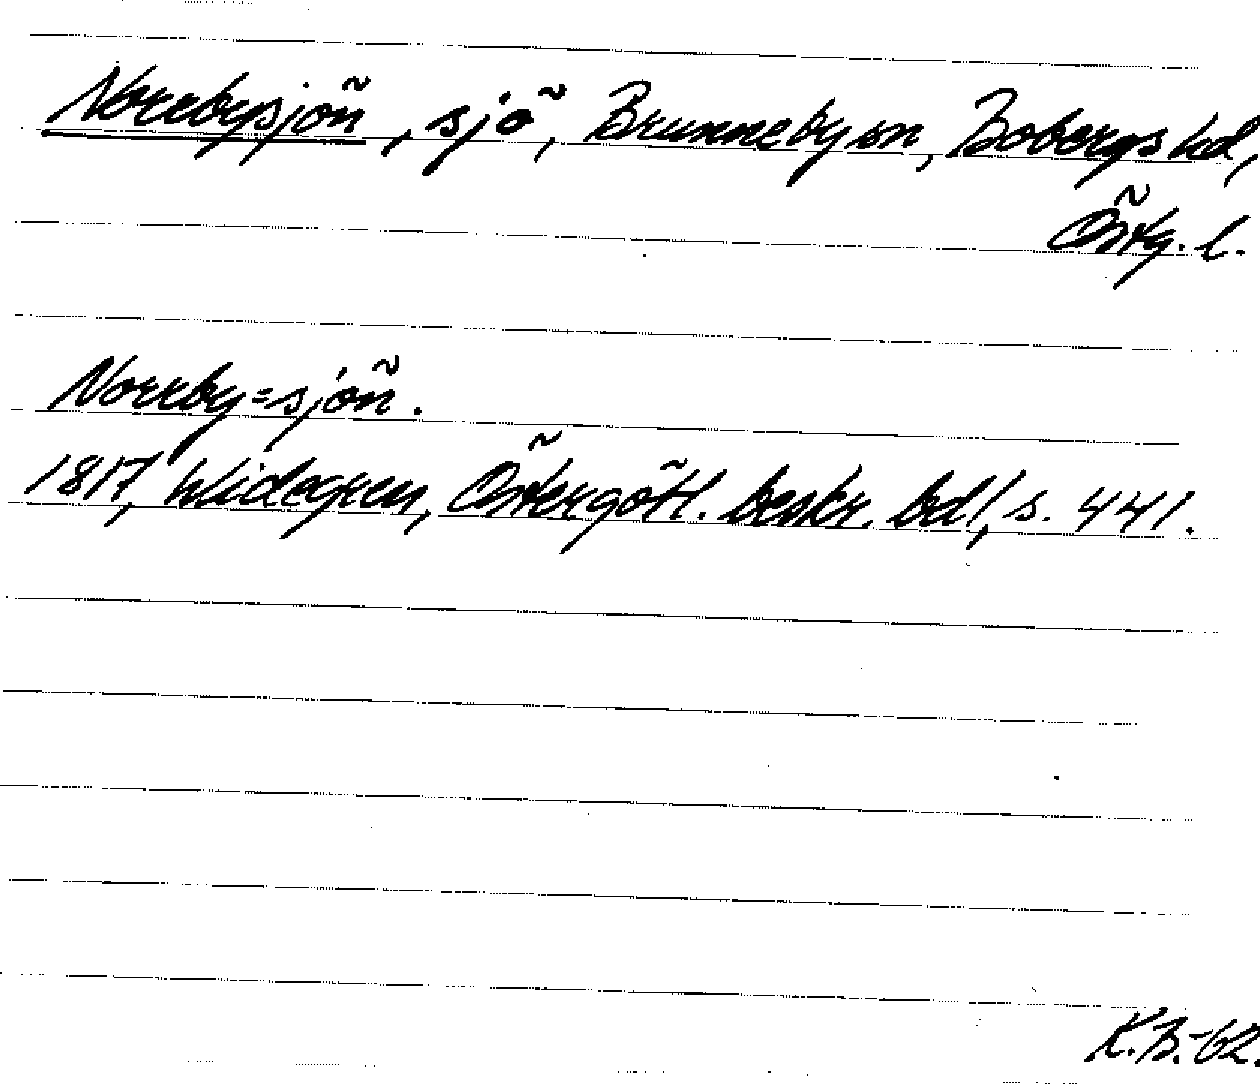 Norrbysjön, sjö, Brunneby sn, Bobergs hd,
Östg. l.
Norrby=sjön.
1817, Widegren, Östergötl. beskr. bd 1, s. 441.
K.B.-62.